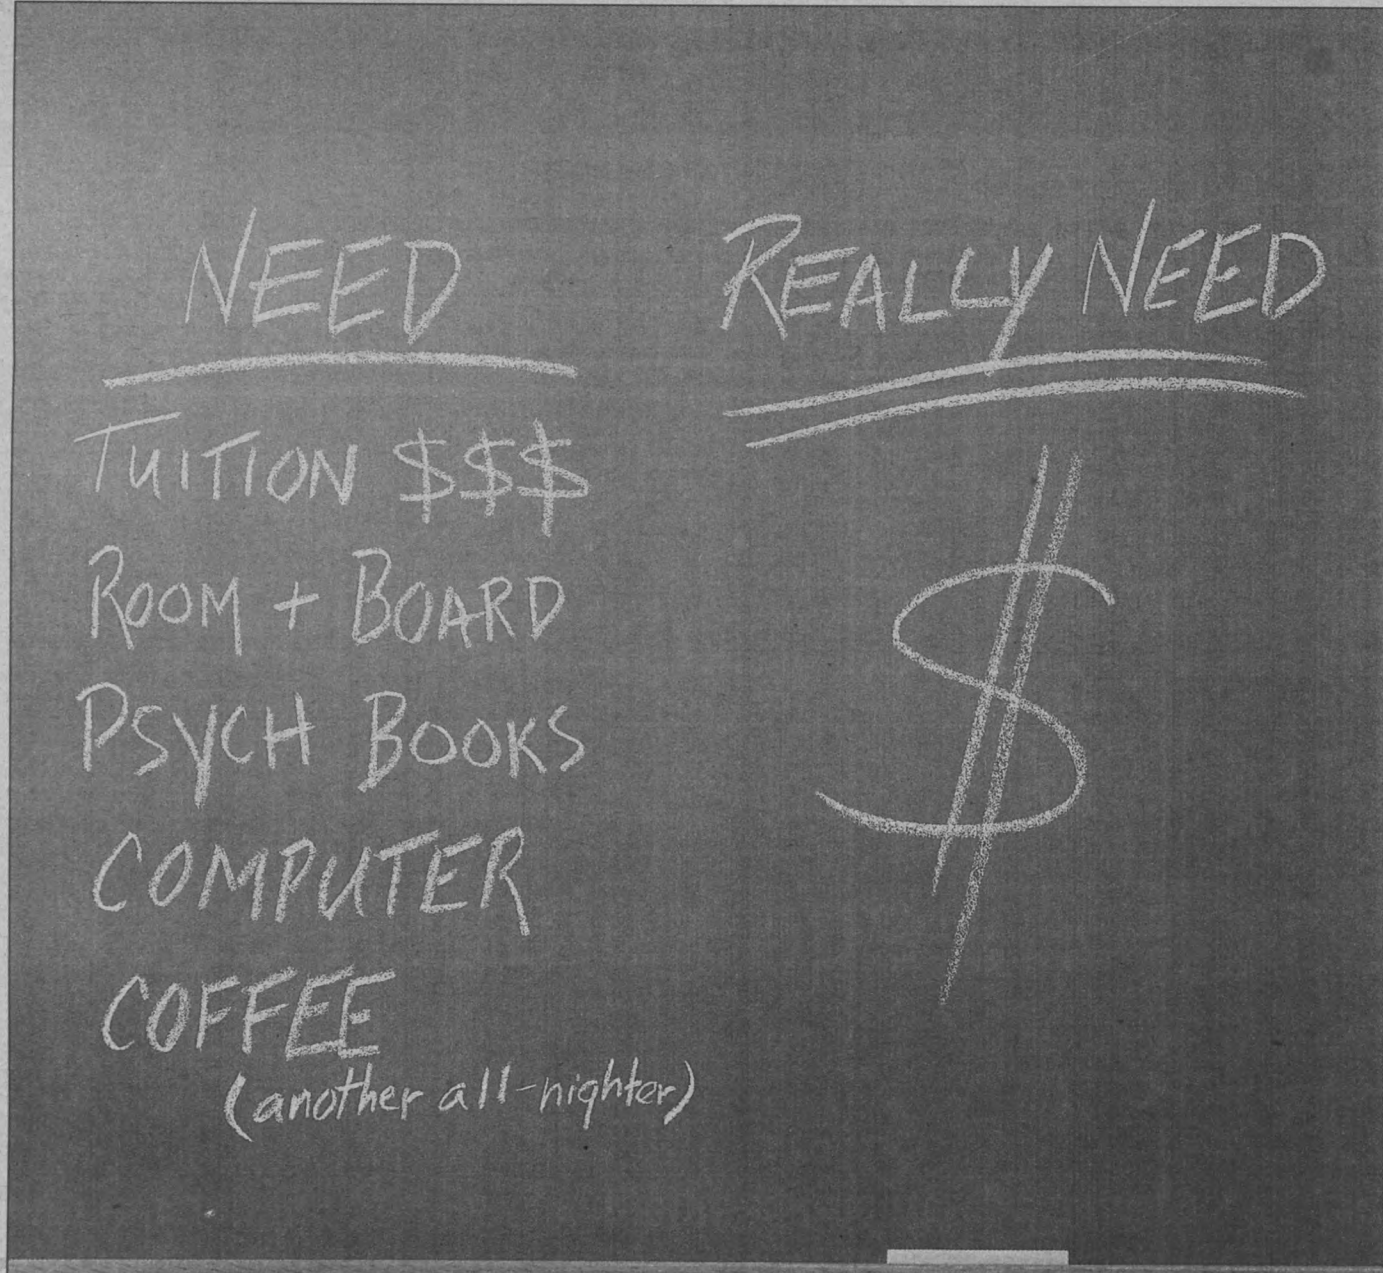 NEED
TUITION $$$
ROOM + BOARD
PSYCH BOOKS
COMPUTER
COFFEE
(another all-nighter)
REALLY NEED
$